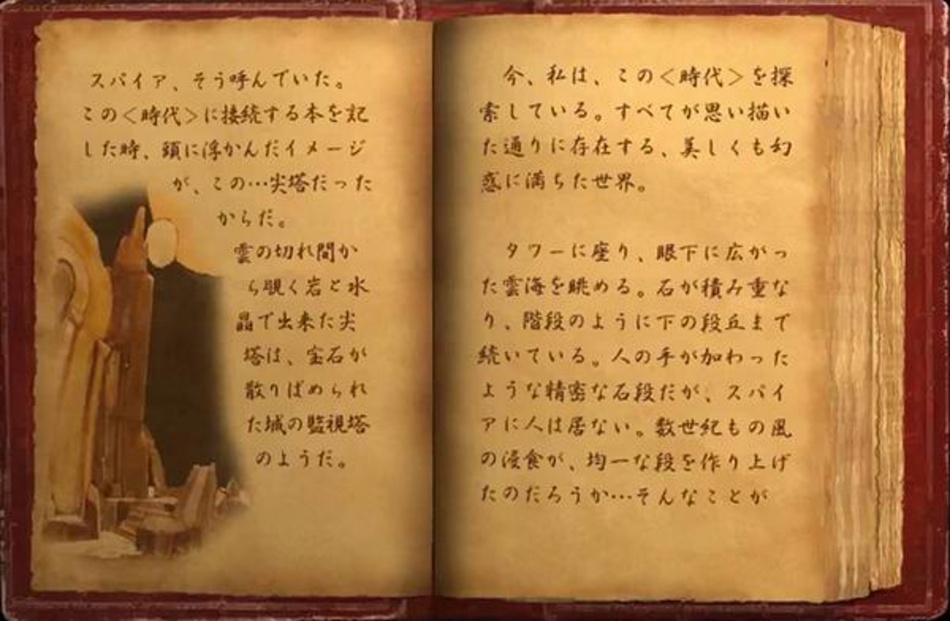 スパイア、そう呼んでいた。
この＜時代＞に接続する本を記
した時、頭に浮かんだイメージ
が、この…尖塔だった
からだ。
雲の切れ間か
ら覗く岩と水
晶で出来た尖
塔は、宝石が
散りばめられ
た城の監視塔
のようだ。
今、私は、この＜時代＞を探
索している。すべてが思い描い
た通りに存在する、美しくも幻
惑に満ちた世界。
タワーに座り、眼下に広がっ
た雲海を眺める。石が積み重な
り、階段のように下の段丘まで
続いている。人の手が加わった
ような精密な石段だが、スパイ
アに人は居ない。数世紀もの風
の浸食が、均一な段を作り上げ
たのだろうか…そんなことが